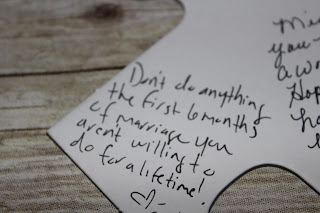 Don't do anything
the first 6 months
of marriage you
aren't willing to
do for a lifetime!
you